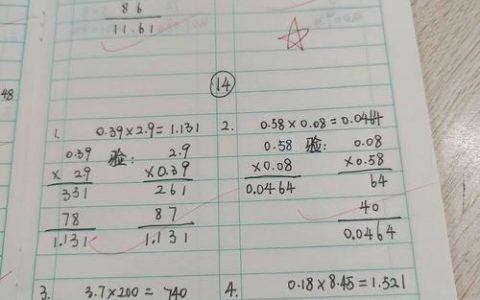 86
11.61
48
14
1. 0.39×2.9=1.131
0.39 验: 2.9
×29 ×0.39
331 261
78 87
1.131 1.131
2. 0.58×0.08=0.0464
0.58 验: 0.08
×0.08 ×0.58
0.0464 64
40
0.0464
3. 3.7×200=740
4. 0.18×8.45=1.521